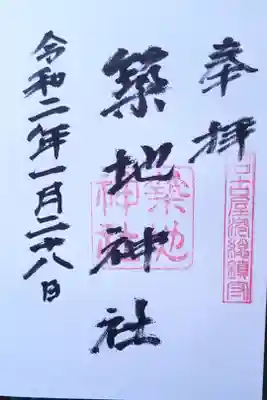 奉拝
名古屋港総鎮守
築地神社
築地神社
令和二年一月二十八日